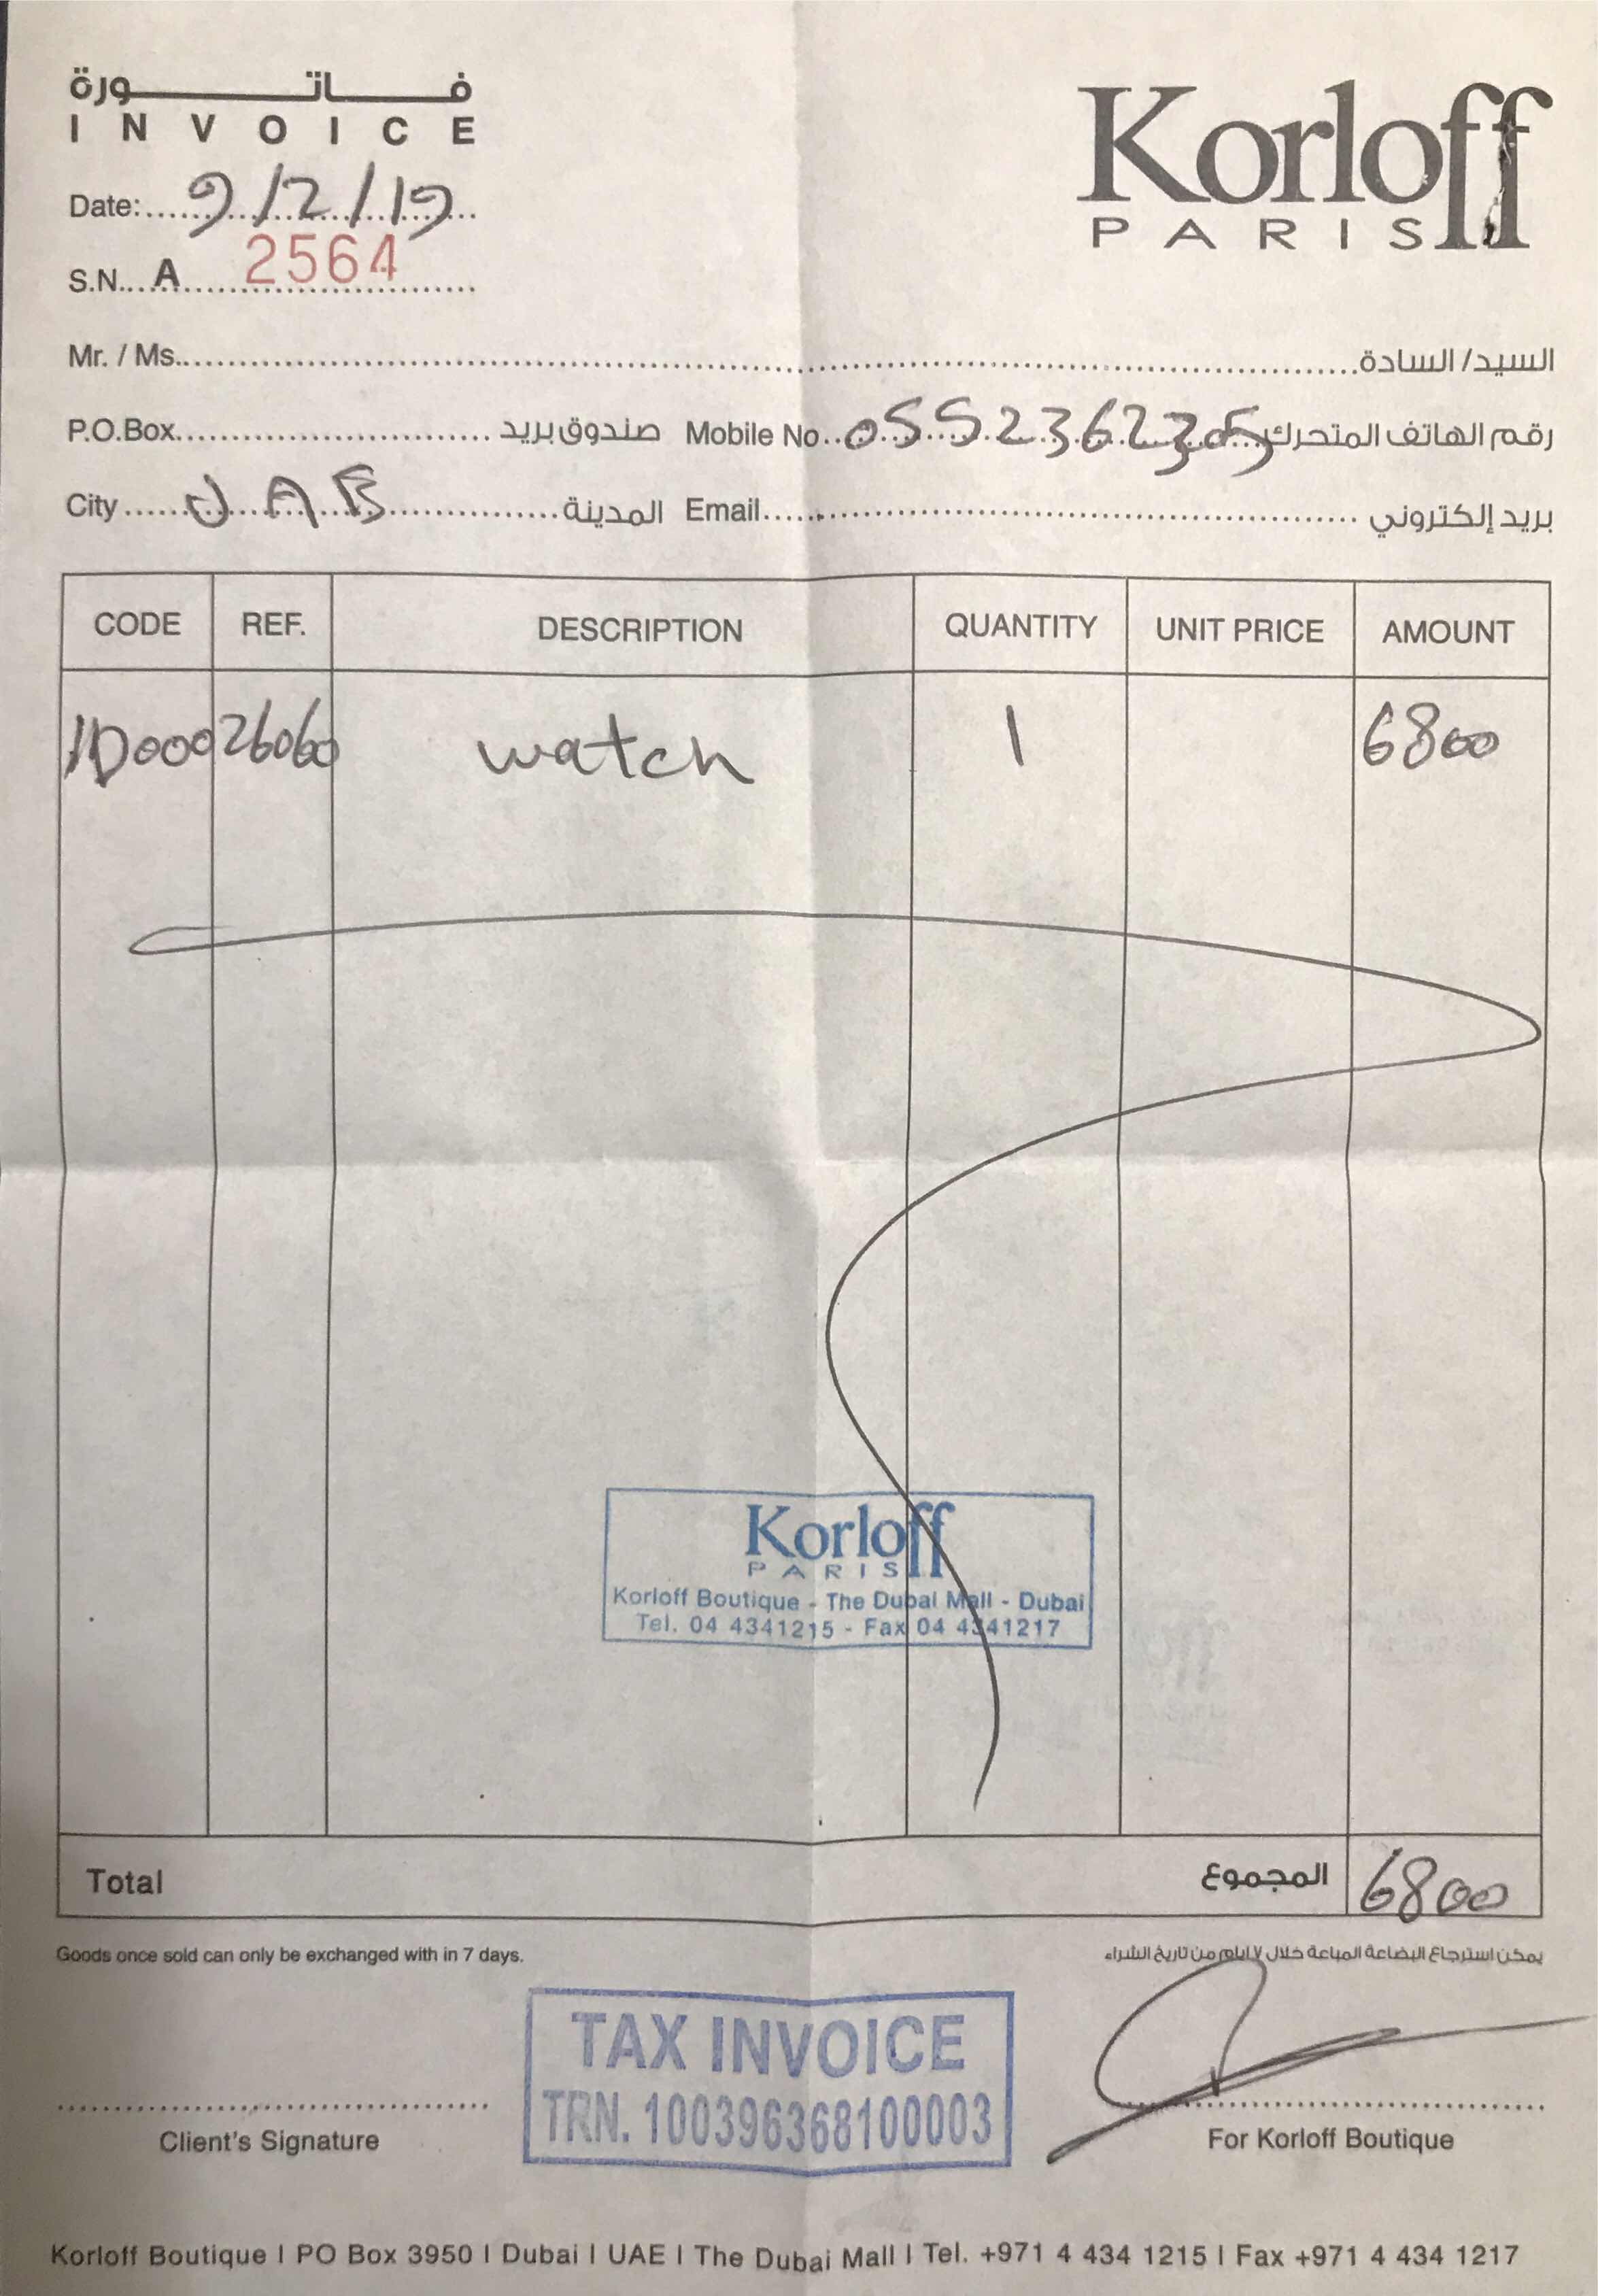 فاتورة
INVOICE
Korloff
PARIS
Date: 9/2/19
S.N. A 2564
Mr. / Ms. السيد/السادة
P.O.Box صندوق بريد Mobile No. رقم الهاتف المتحرك
City المدينة Email بريد إلكتروني
CODE REF. DESCRIPTION QUANTITY UNIT PRICE AMOUNT
1D00026060 watch 1 6800
Korloff
PARIS
Korloff Boutique - The Dubai Mall - Dubai
Tel. 04 4341215 - Fax 04 4341217
Total المجموع 6800
Goods once sold can only be exchanged with in 7 days. يمكن استرجاع البضاعة المباعة خلال ٧ ايام من تاريخ الشراء
TAX INVOICE
TRN. 100396368100003
Client's Signature For Korloff Boutique
Korloff Boutique I PO Box 3950 I Dubai I UAE I The Dubai Mall I Tel. +971 4 434 1215 I Fax +971 4 434 1217